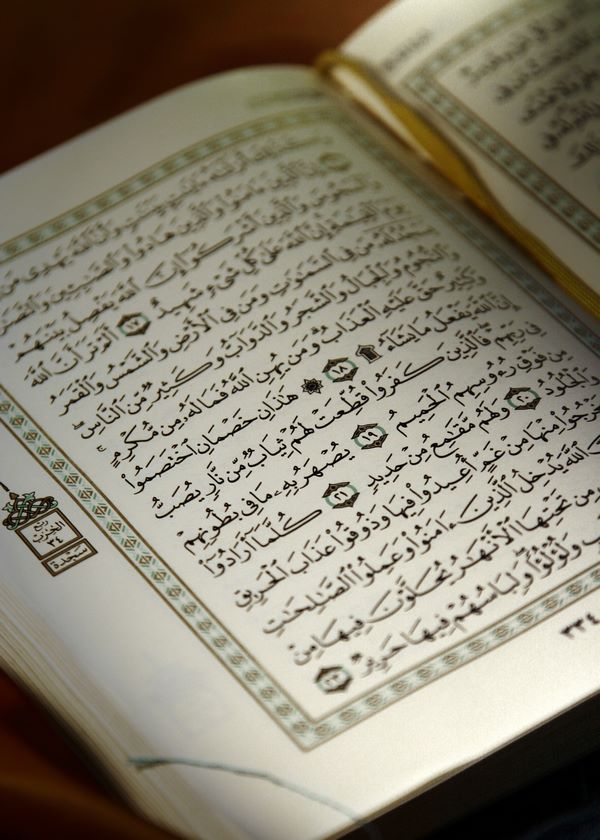 أَنزَلْنَٰهُ ءَايَٰتٍۭ بَيِّنَٰتٍ وَأَنَّ ٱللَّهَ يَهْدِى مَن
ٱلَّذِينَ ءَامَنُوا۟ وَٱلَّذِينَ هَادُوا۟ وَٱلصَّٰبِـِٔينَ وَٱلنَّصَٰرَىٰ
وَٱلْمَجُوسَ وَٱلَّذِينَ أَشْرَكُوٓا۟ إِنَّ ٱللَّهَ يَفْصِلُ بَيْنَهُمْ
يَوْمَ ٱلْقِيَٰمَةِ إِنَّ ٱللَّهَ عَلَىٰ كُلِّ شَىْءٍ شَهِيدٌ ١٧ أَلَمْ تَرَ أَنَّ ٱللَّهَ
يَسْجُدُ لَهُۥ مَن فِى ٱلسَّمَٰوَٰتِ وَمَن فِى ٱلْأَرْضِ وَٱلشَّمْسُ وَٱلْقَمَرُ
وَٱلنُّجُومُ وَٱلْجِبَالُ وَٱلشَّجَرُ وَٱلدَّوَآبُّ وَكَثِيرٌ مِّنَ ٱلنَّاسِ
وَكَثِيرٌ حَقَّ عَلَيْهِ ٱلْعَذَابُ وَمَن يُهِنِ ٱللَّهُ فَمَا لَهُۥ مِن مُّكْرِمٍ
إِنَّ ٱللَّهَ يَفْعَلُ مَا يَشَآءُ ۩ ١٨ ۞ هَٰذَانِ خَصْمَانِ ٱخْتَصَمُوا۟
فِى رَبِّهِمْ فَٱلَّذِينَ كَفَرُوا۟ قُطِّعَتْ لَهُمْ ثِيَابٌ مِّن نَّارٍ يُصَبُّ
مِن فَوْقِ رُءُوسِهِمُ ٱلْحَمِيمُ ١٩ يُصْهَرُ بِهِۦ مَا فِى بُطُونِهِمْ
وَٱلْجُلُودُ ٢٠ وَلَهُم مَّقَٰمِعُ مِنْ حَدِيدٍ ٢١ كُلَّمَآ أَرَادُوٓا۟
يَخْرُجُوا۟ مِنْهَا مِنْ غَمٍّ أُعِيدُوا۟ فِيهَا وَذُوقُوا۟ عَذَابَ ٱلْحَرِيقِ
ٱللَّهَ يُدْخِلُ ٱلَّذِينَ ءَامَنُوا۟ وَعَمِلُوا۟ ٱلصَّٰلِحَٰتِ
مِن تَحْتِهَا ٱلْأَنْهَٰرُ يُحَلَّوْنَ فِيهَا مِنْ
وَلُؤْلُؤًا وَلِبَاسُهُمْ فِيهَا حَرِيرٌ ٢٣
ربع
الحزب
٣٤
سجدة
٣٣٤